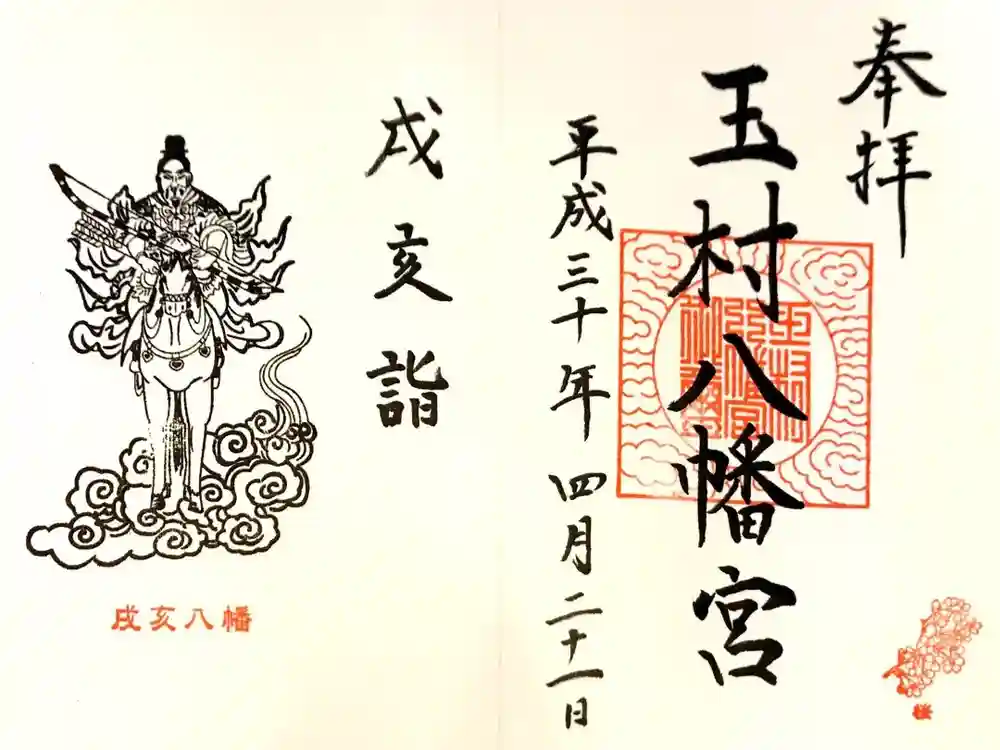 奉拝
玉村八幡宮
平成三十年四月二十一日
桜
戌亥詣
戌亥八幡